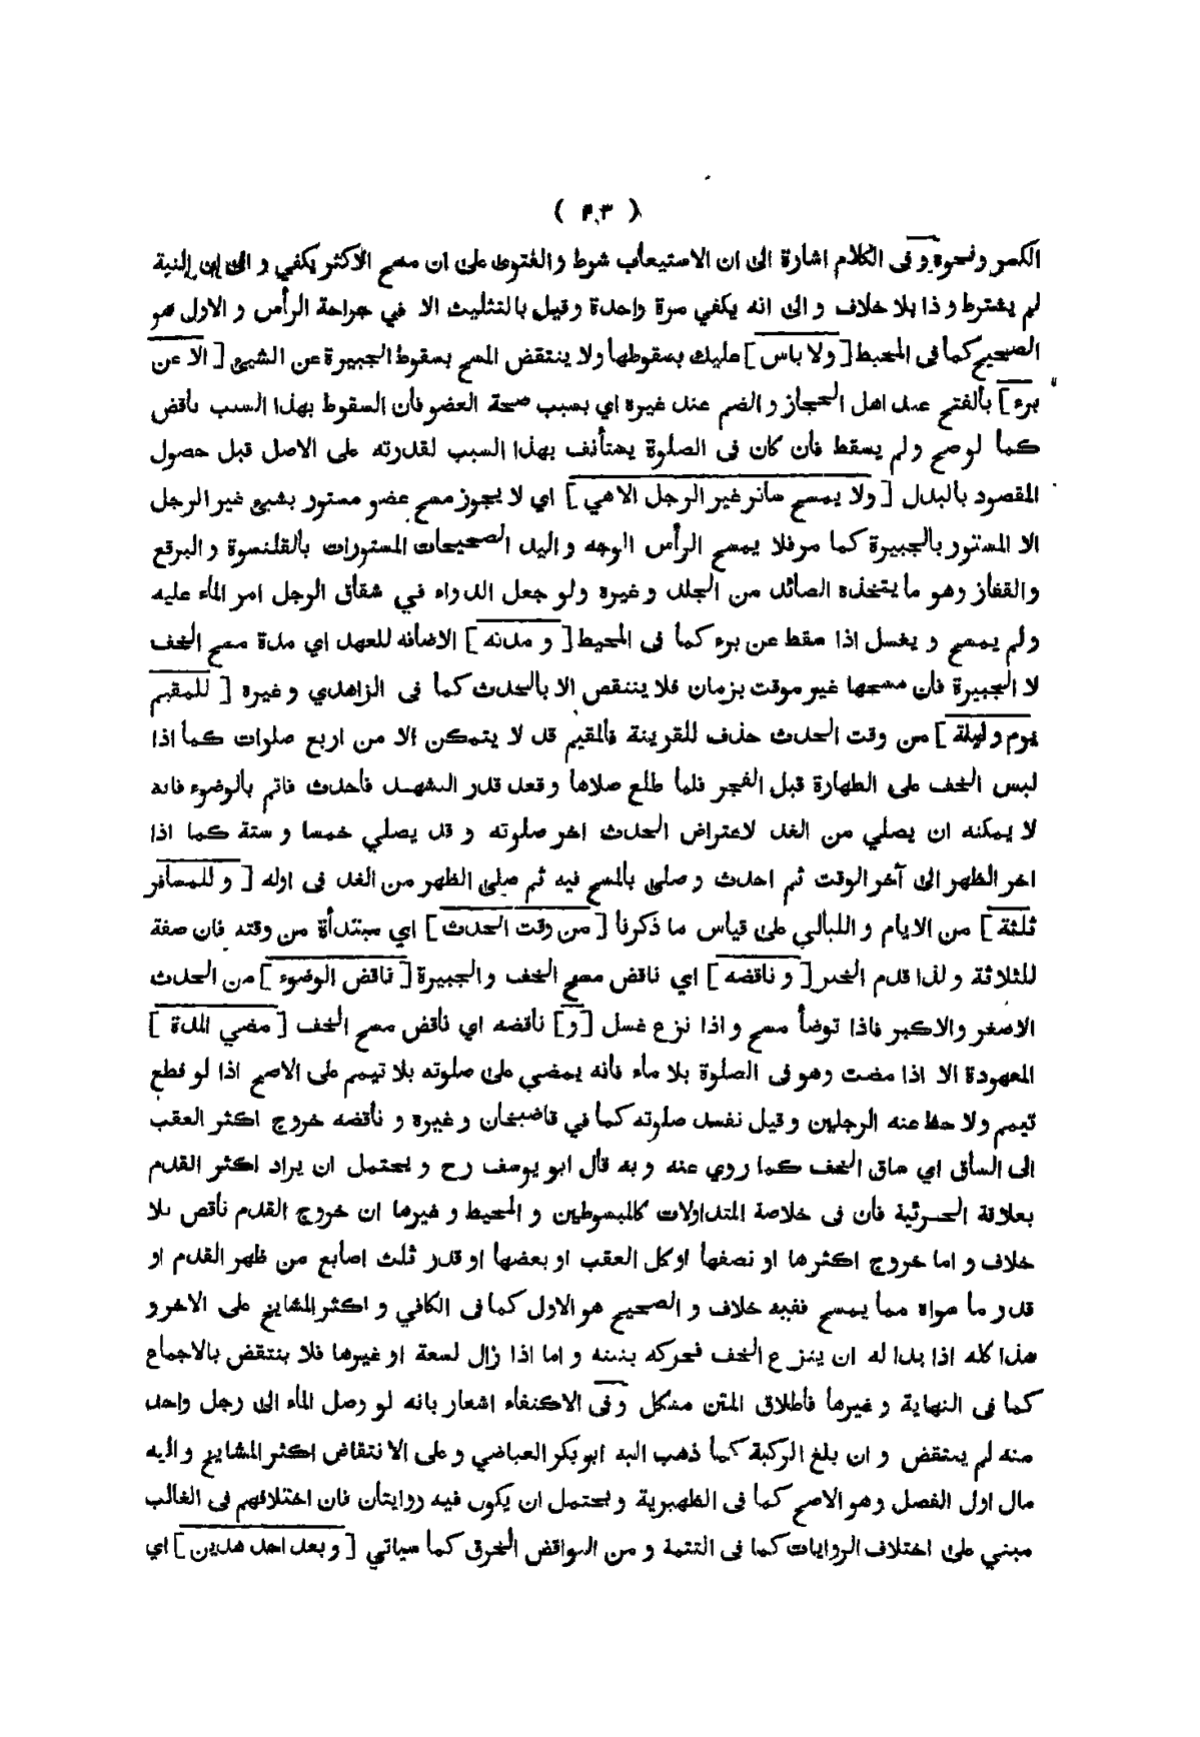 ( ٤٣ )
الكسر ونحوه و فى الكلام اشارة الى ان الاستيعاب شرط والفتوى على ان مسح الاكثر يكفي و الى ان النية
لم يشترط و ذا بلا خلاف و الى انه يكفي مرة واحدة و قيل بالتثليث الا في جراحة الرأس و الاول هو
الصحيح كما فى المحيط [ ولا باس ] عليك بسقوطها ولا ينتقض المسح بسقوط الجبيرة عن الشيئ [ الا عن
برء ] بالفتح عند اهل الحجاز و الضم عند غيره اي بسبب صحة العضو فان السقوط بهذا السبب ناقض
كما لو صح و لم يسقط فان كان فى الصلوة يستأنف بهذا السبب لقدرته على الاصل قبل حصول
المقصود بالبدل [ ولا يمسح ساتر غير الرجل الا هي ] اي لا يجوز مسح عضو مستور بشيئ غير الرجل
الا المستور بالجبيرة كما مر فلا يمسح الرأس الوجه و اليد الصحيحات المستورات بالقلنسوة و البرقع
والقفاز وهو ما يتخذه الصائد من الجلد و غيره ولو جعل الدواء في شقاق الرجل امر الماء عليه
ولم يمسح و يغسل اذا سقط عن برء كما فى المحيط [ و مدته ] الاضافه للعهد اي مدة مسح الخف
لا الجبيرة فان مسحها غير موقت بزمان فلا ينتقض الا بالحدث كما فى الزاهدي و غيره [ للمقيم
يوم و ليلة ] من وقت الحدث حذف للقرينة فالمقيم قد لا يتمكن الا من اربع صلوات كما اذا
لبس الخف على الطهارة قبل الفجر فلما طلع صلاها و قعد قدر التشهد فاحدث فاتم بالوضوء فانه
لا يمكنه ان يصلي من الغد لاعتراض الحدث اخر صلوته و قد يصلي خمسا و ستة كما اذا
اخر الظهر الى آخر الوقت ثم احدث و صلى بالمسح فيه ثم صلى الظهر من الغد فى اوله [ و للمسافر
ثلثة ] من الايام و الليالي على قياس ما ذكرنا [ من وقت الحدث ] اي مبتدأة من وقته فان صفة
للثلاثة و لذا قدم الخبر [ و ناقضه ] اي ناقض مسح الخف و الجبيرة [ ناقض الوضوء ] من الحدث
الاصغر والاكبر فاذا توضأ مسح و اذا نزع غسل [ و ] ناقضه اي ناقض مسح الخف [ مضي المدة ]
المعهودة الا اذا مضت وهو فى الصلوة بلا ماء فانه يمضي على صلوته بلا تيمم على الاصح اذا لو قطع
تيمم ولا حظ عنه الرجلين و قيل تفسد صلوته كما في قاضيخان و غيره و ناقضه خروج اكثر العقب
الى الساق اي ساق الخف كما روي عنه و به قال ابو يوسف رح و يحتمل ان يراد اكثر القدم
بعلاقة الجزئية فان فى خلاصة المتداولات كالمبسوطين و المحيط و غيرها ان خروج القدم ناقض بلا
خلاف و اما خروج اكثرها او نصفها او كل العقب او بعضها او قدر ثلث اصابع من ظهر القدم او
قدر ما سواه مما يمسح ففيه خلاف و الصحيح هو الاول كما فى الكافي و اكثر المشايخ على الاخر و
هذا كله اذا بدا له ان ينزع الخف فحركه بنيته و اما اذا زال لسعة او غيرها فلا ينتقض بالاجماع
كما فى النهاية و غيرها فاطلاق المتن مشكل و فى الاكتفاء اشعار بانه لو وصل الماء الى رجل واحد
منه لم ينتقض و ان بلغ الركبة كما ذهب اليه ابو بكر العياضي و على الانتقاض اكثر المشايخ و اليه
مال اول الفصل وهو الاصح كما فى الظهيرية و يحتمل ان يكون فيه روايتان فان اختلافهم فى الغالب
مبني على اختلاف الروايات كما فى التتمة و من النواقض الخرق كما سياتي [ و بعد احد هذين ] اي